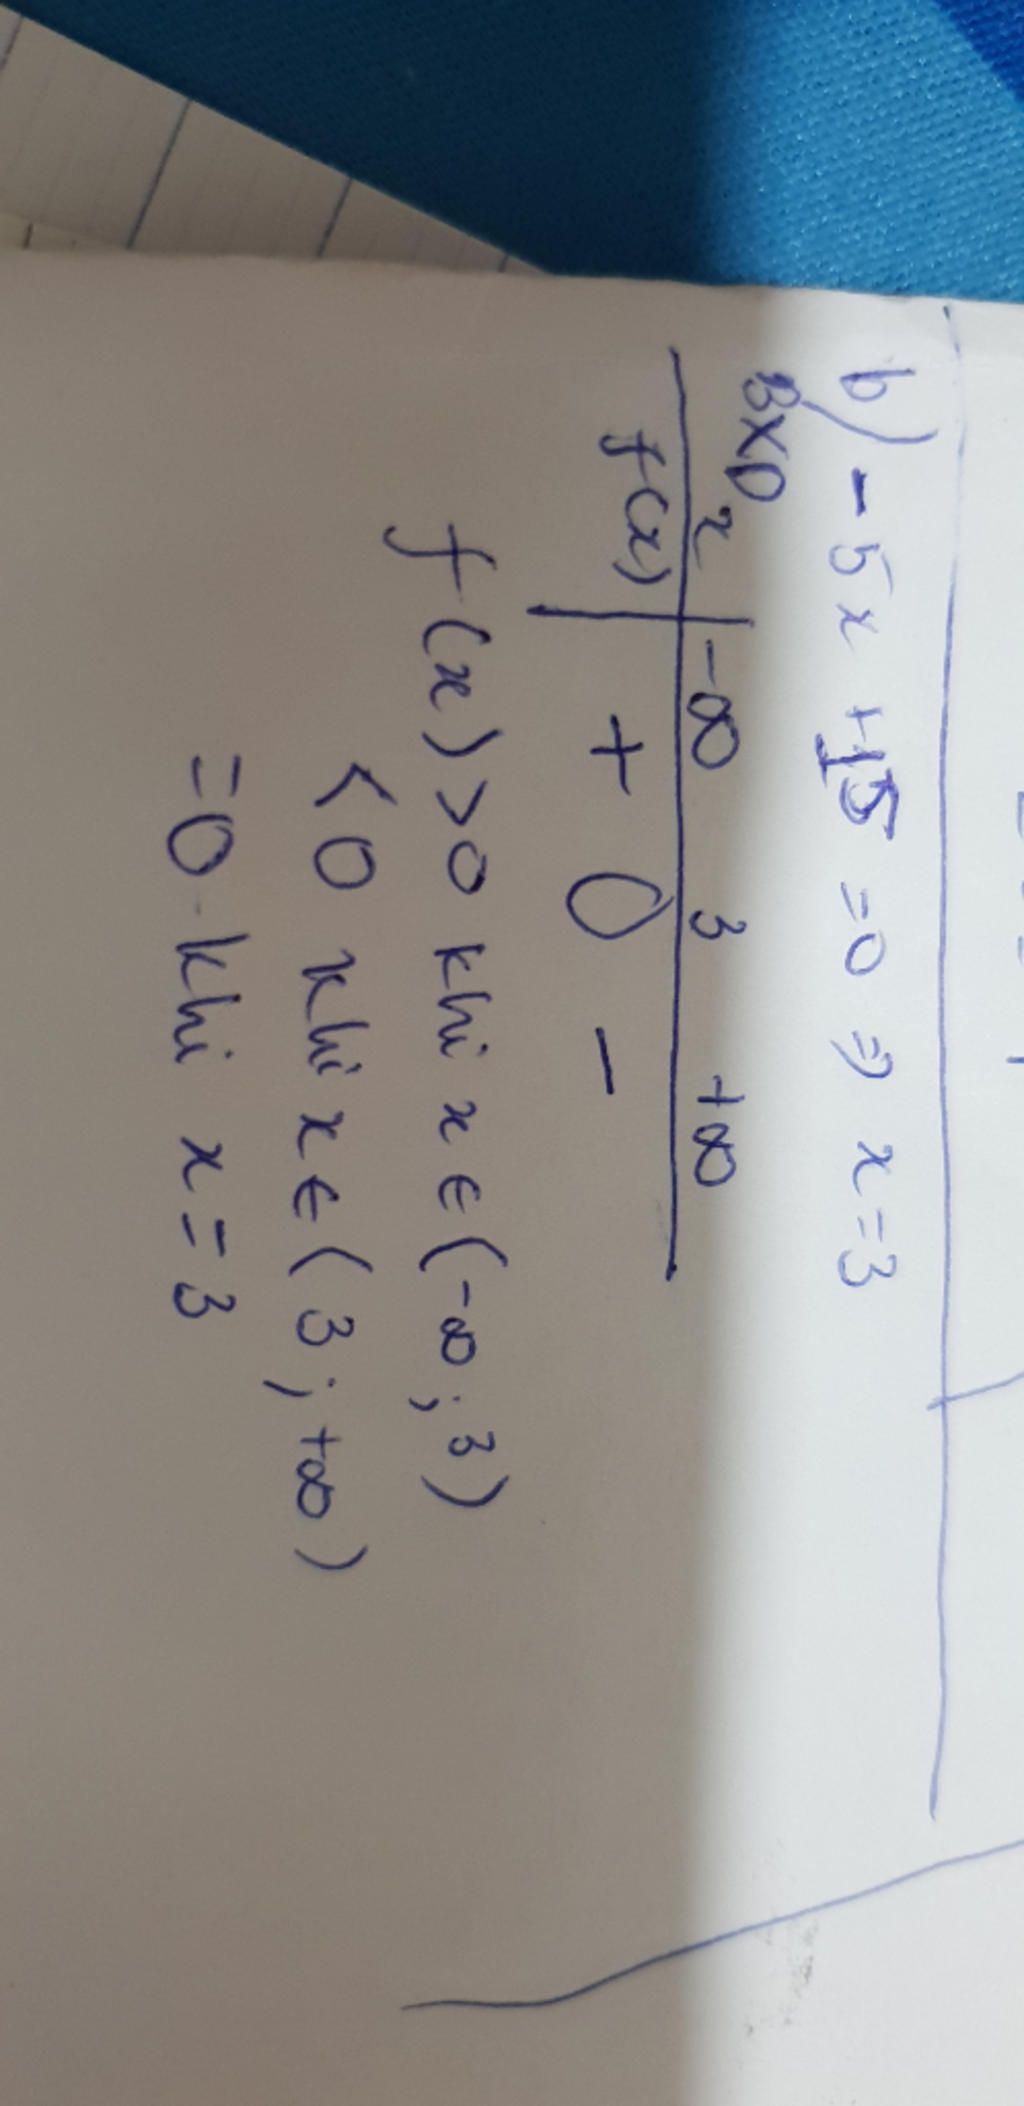 b) -5x +15 =0 => x = 3
BXD
x -∞ 3 +∞
f(x) + 0 -
f(x) >0 khi x ∈ (-∞; 3)
<0 khi x ∈ (3; +∞)
=0 khi x = 3